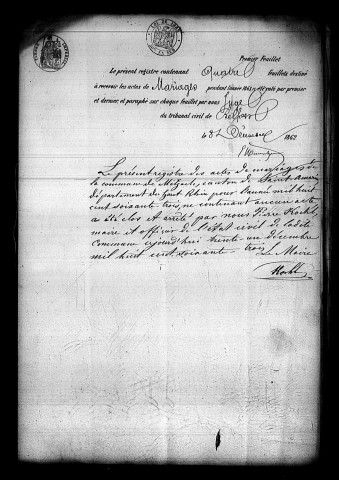 Premier Feuillet
Le présent registre contenant Quatre feuillets destiné
à recevoir les actes de Mariages pendant l'année 1863, a été coté par premier
et dernier, et paraphé sur chaque feuillet par nous Juge
du tribunal civil de Belfort
Décembre 1862
Le présent registre des actes de mariages de
la commune de canton de Saint Amarin
département du haut Rhin pour l'année mil huit
cent soixante trois, ne contenant aucun acte
a été clos et arrêté par nous Pierre
maire et officier de l'état civil de ladite
commune cejourd'hui trente-un décembre
mil huit cent soixante-trois
Le Maire